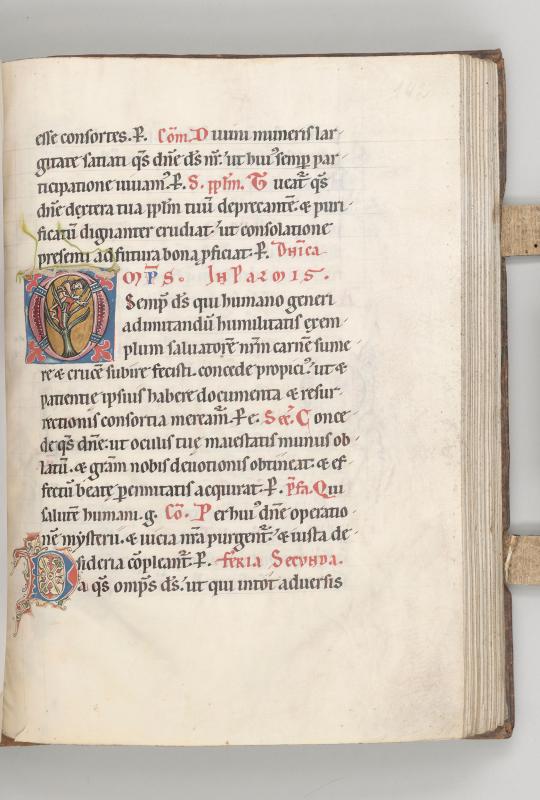 142
esse consortes. P. Cōm. Diuini muneris lar-
gitate satiati qs̄ dn̄e ds̄ nr̄. ut hui' semp par-
ticipatione uiuam'. P. S. pplm̄. Tueat' qs̄
dn̄e dextera tua pplm̄ tuū deprecantē. & puri-
ficatū dignanter erudiat. ut consolatione
presenti ad futura bona pficiat. P. Dn̄ica
OMPS. IN PALMIS.
Semp ds̄ qui humano generi
ad imitandū humilitatis exem-
plum saluatorē nr̄m carnē sume-
re & crucē subire fecisti. concede propici'. ut &
patientie ipsius habere documenta & resur-
rectionis consortia meream̄. P e. Sec̄. Conce-
de qs̄ dn̄e. ut oculis tuę maiestatis munus ob-
latū. & grām nobis deuotionis obtineat. & ef-
fectū beatę pennitatis acquirat. P. p̄fa. Qui
salutē humani. g. Cō. Per hui' dn̄e operatio-
nē mysterii. & uicia nr̄a purgent'. & iusta de-
sideria cōpleant'. P. FERIA Secunda.
Da qs̄ omps̄ ds̄. ut qui in tot aduersis